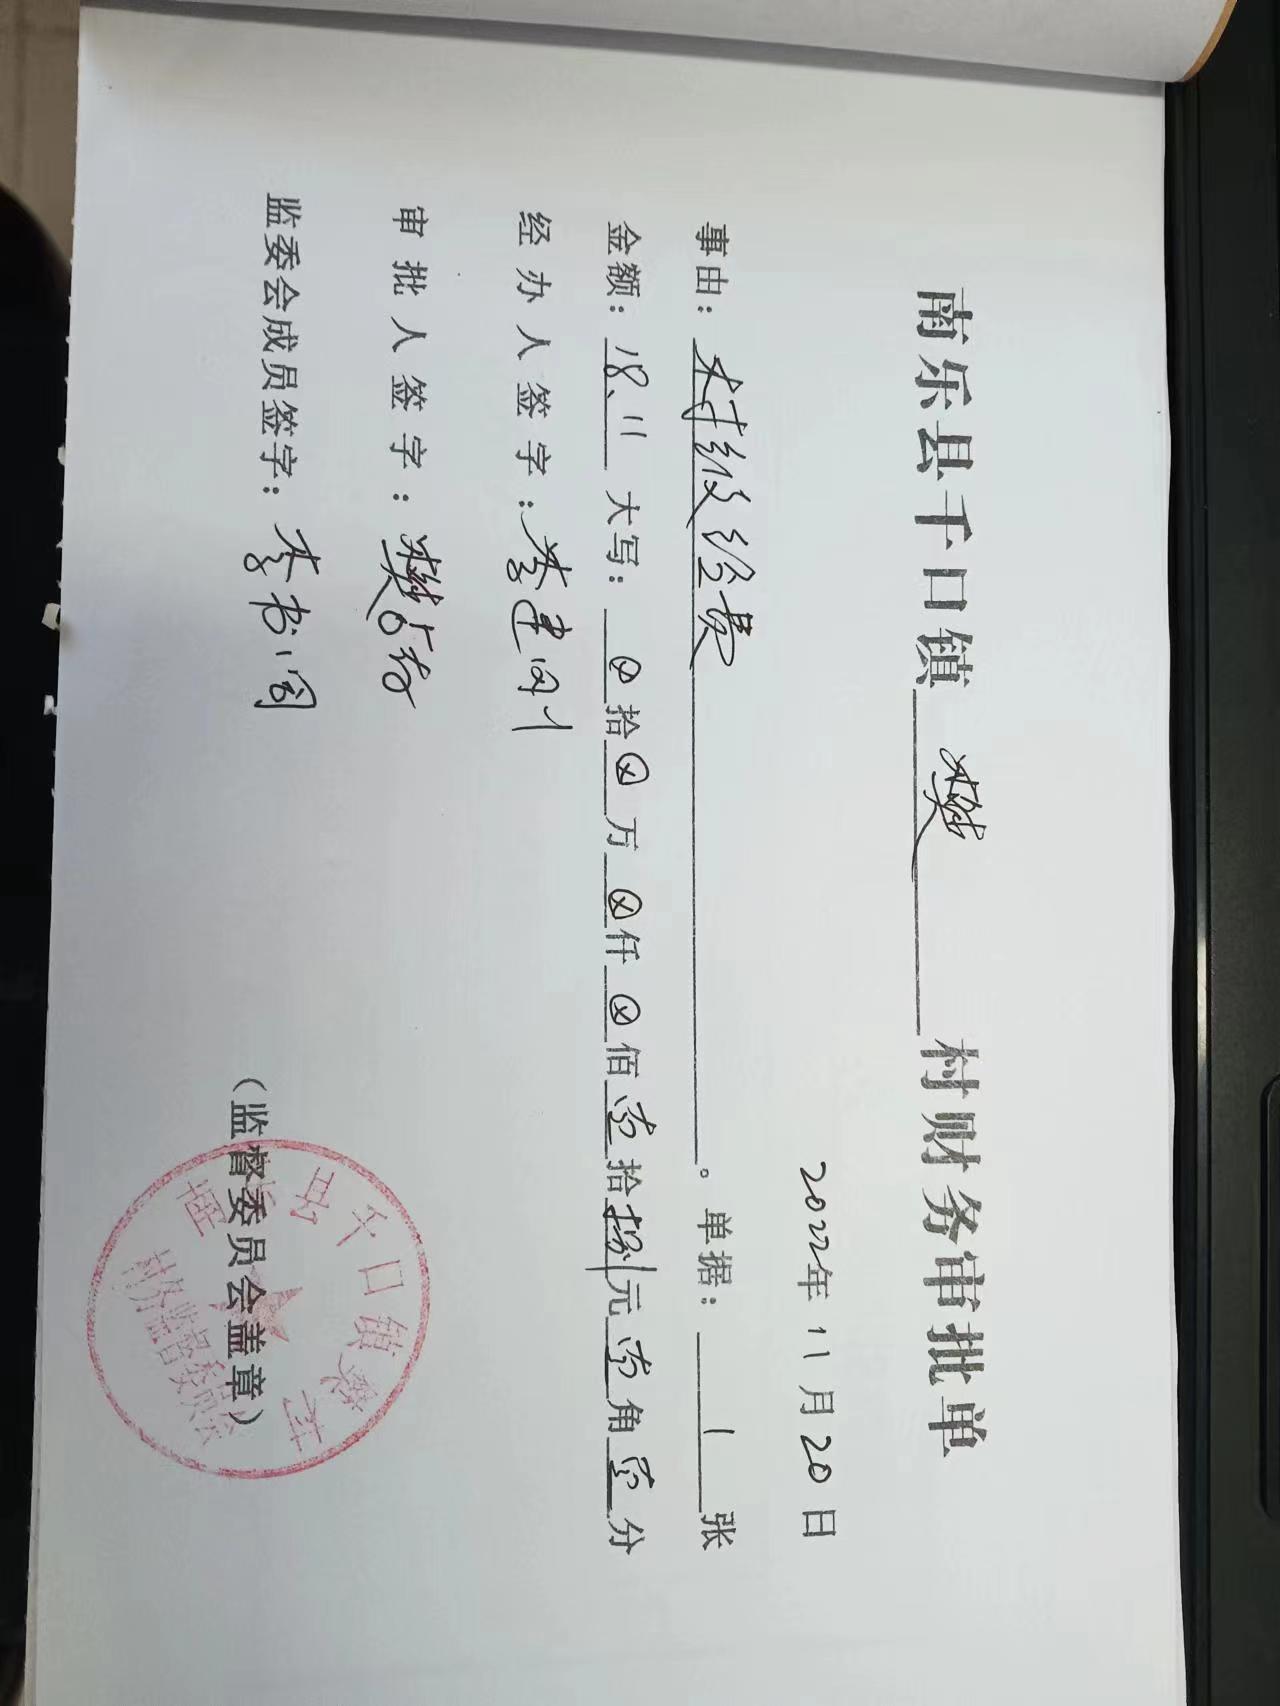 南乐县千口镇 樊 村财务审批单
2022年11月20日
事由：村级经费。单据：1张
金额：18.11 大写：⊗拾⊗万⊗仟⊗佰壹拾捌元壹角壹分
经办人签字：李建
审批人签字：樊
监委会成员签字：李书
（监督委员会盖章）
南乐县千口镇樊村
村务监督委员会